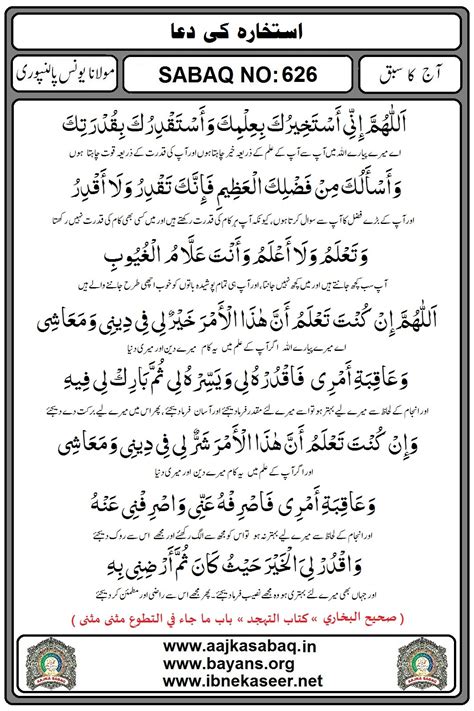 استخارہ کی دعا
آج کا سبق
SABAQ NO: 626
مولانا یونس پالنپوری
اَللّٰهُمَّ اِنِّي أَسْتَخِيْرُكَ بِعِلْمِكَ وَأَسْتَقْدِرُكَ بِقُدْرَتِكَ
اے میرے پیارے اللہ میں آپ سے آپ کے علم کے ذریعہ خیر چاہتا ہوں اور آپ کی قدرت کے ذریعہ قوت چاہتا ہوں
وَأَسْأَلُكَ مِنْ فَضْلِكَ الْعَظِيْمِ فَإِنَّكَ تَقْدِرُ وَلَا أَقْدِرُ
اور آپ کے بڑے فضل کا آپ سے سوال کرتا ہوں، کیونکہ آپ ہر کام کی قدرت رکھتے ہیں اور میں کسی بھی کام کی قدرت نہیں رکھتا
وَتَعْلَمُ وَلَا أَعْلَمُ وَأَنْتَ عَلَّامُ الْغُيُوْبِ
آپ سب کچھ جانتے ہیں اور میں کچھ نہیں جانتا، اور آپ ہی تمام پوشیدہ باتوں کو خوب اچھی طرح جاننے والے ہیں
اَللّٰهُمَّ إِنْ كُنْتَ تَعْلَمُ أَنَّ هٰذَا الْأَمْرَ خَيْرٌ لِي فِي دِيْنِي وَمَعَاشِي
اے میرے پیارے اللہ اگر آپ کے علم میں یہ کام میرے دین اور میری دنیا
وَعَاقِبَةِ أَمْرِي فَاقْدُرْهُ لِي وَيَسِّرْهُ لِي ثُمَّ بَارِكْ لِي فِيهِ
اور انجام کے لحاظ سے میرے لیے بہتر ہو تو اسے میرے لئے مقدر فرما دیجئے اور آسان فرما دیجئے، پھر اس میں میرے لیے برکت دے دیجئے
وَإِنْ كُنْتَ تَعْلَمُ أَنَّ هٰذَا الْأَمْرَ شَرٌّ لِي فِي دِيْنِي وَمَعَاشِي
اور اگر آپ کے علم میں یہ کام میرے دین اور میری دنیا
وَعَاقِبَةِ أَمْرِي فَاصْرِفْهُ عَنِّي وَاصْرِفْنِي عَنْهُ
اور انجام کے لحاظ سے میرے لیے بہتر نہ ہو تو اس کو مجھ سے الگ رکھئے، اور مجھے اس سے روک دیجئے
وَاقْدُرْ لِيَ الْخَيْرَ حَيْثُ كَانَ ثُمَّ أَرْضِنِي بِهِ
اور جہاں بھی میرے لئے بہتری ہو وہ مجھے نصیب فرما دیجئے، پھر مجھے اس سے راضی اور مطمئن کر دیجئے
( صحيح البخاري » كتاب التهجد » باب ما جاء في التطوع مثنى مثنى )
www.aajkasabaq.in
www.bayans.org
www.ibnekaseer.net
AAJKA SABAQ
AAJKA SABAQ